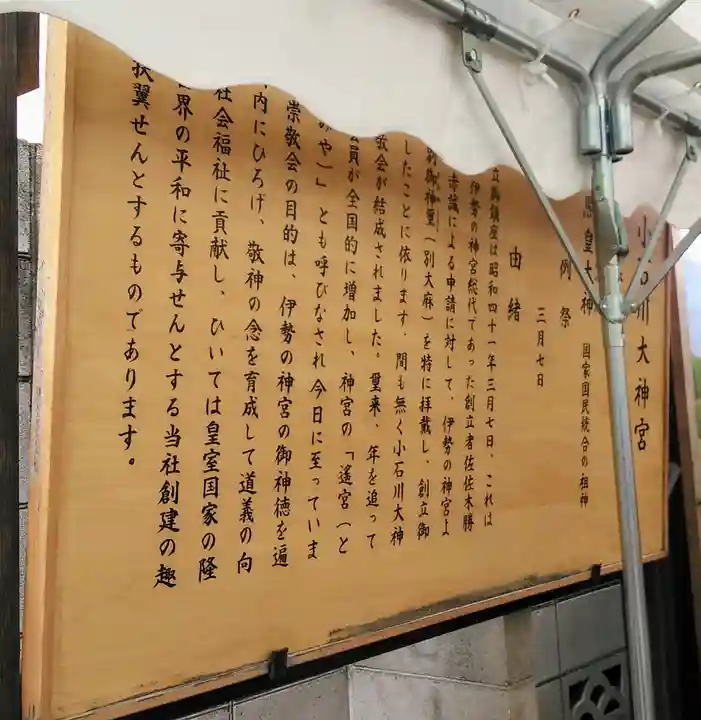 小石川大神宮
皇大神 国家国民統合の祖神
例祭 三月七日
由緒
立御鎮座は昭和四十一年三月七日、これは
伊勢の神宮総代であった創立者佐佐木勝
赤誠による申請に対して、伊勢の神宮よ
別御神璽(別大麻)を特に拝戴し、創立御
したことに依ります。間も無く小石川大神
敬会が結成されました。爾来、年を追って
会員が全国的に増加し、神宮の「遙宮(と
みや)」とも呼びなされ今日に至っていま
崇敬会の目的は、伊勢の神宮の御神徳を遍
内にひろげ、敬神の念を育成して道義の向
社会福祉に貢献し、ひいては皇室国家の隆
世界の平和に寄与せんとする当社創建の趣
扶翼せんとするものであります。